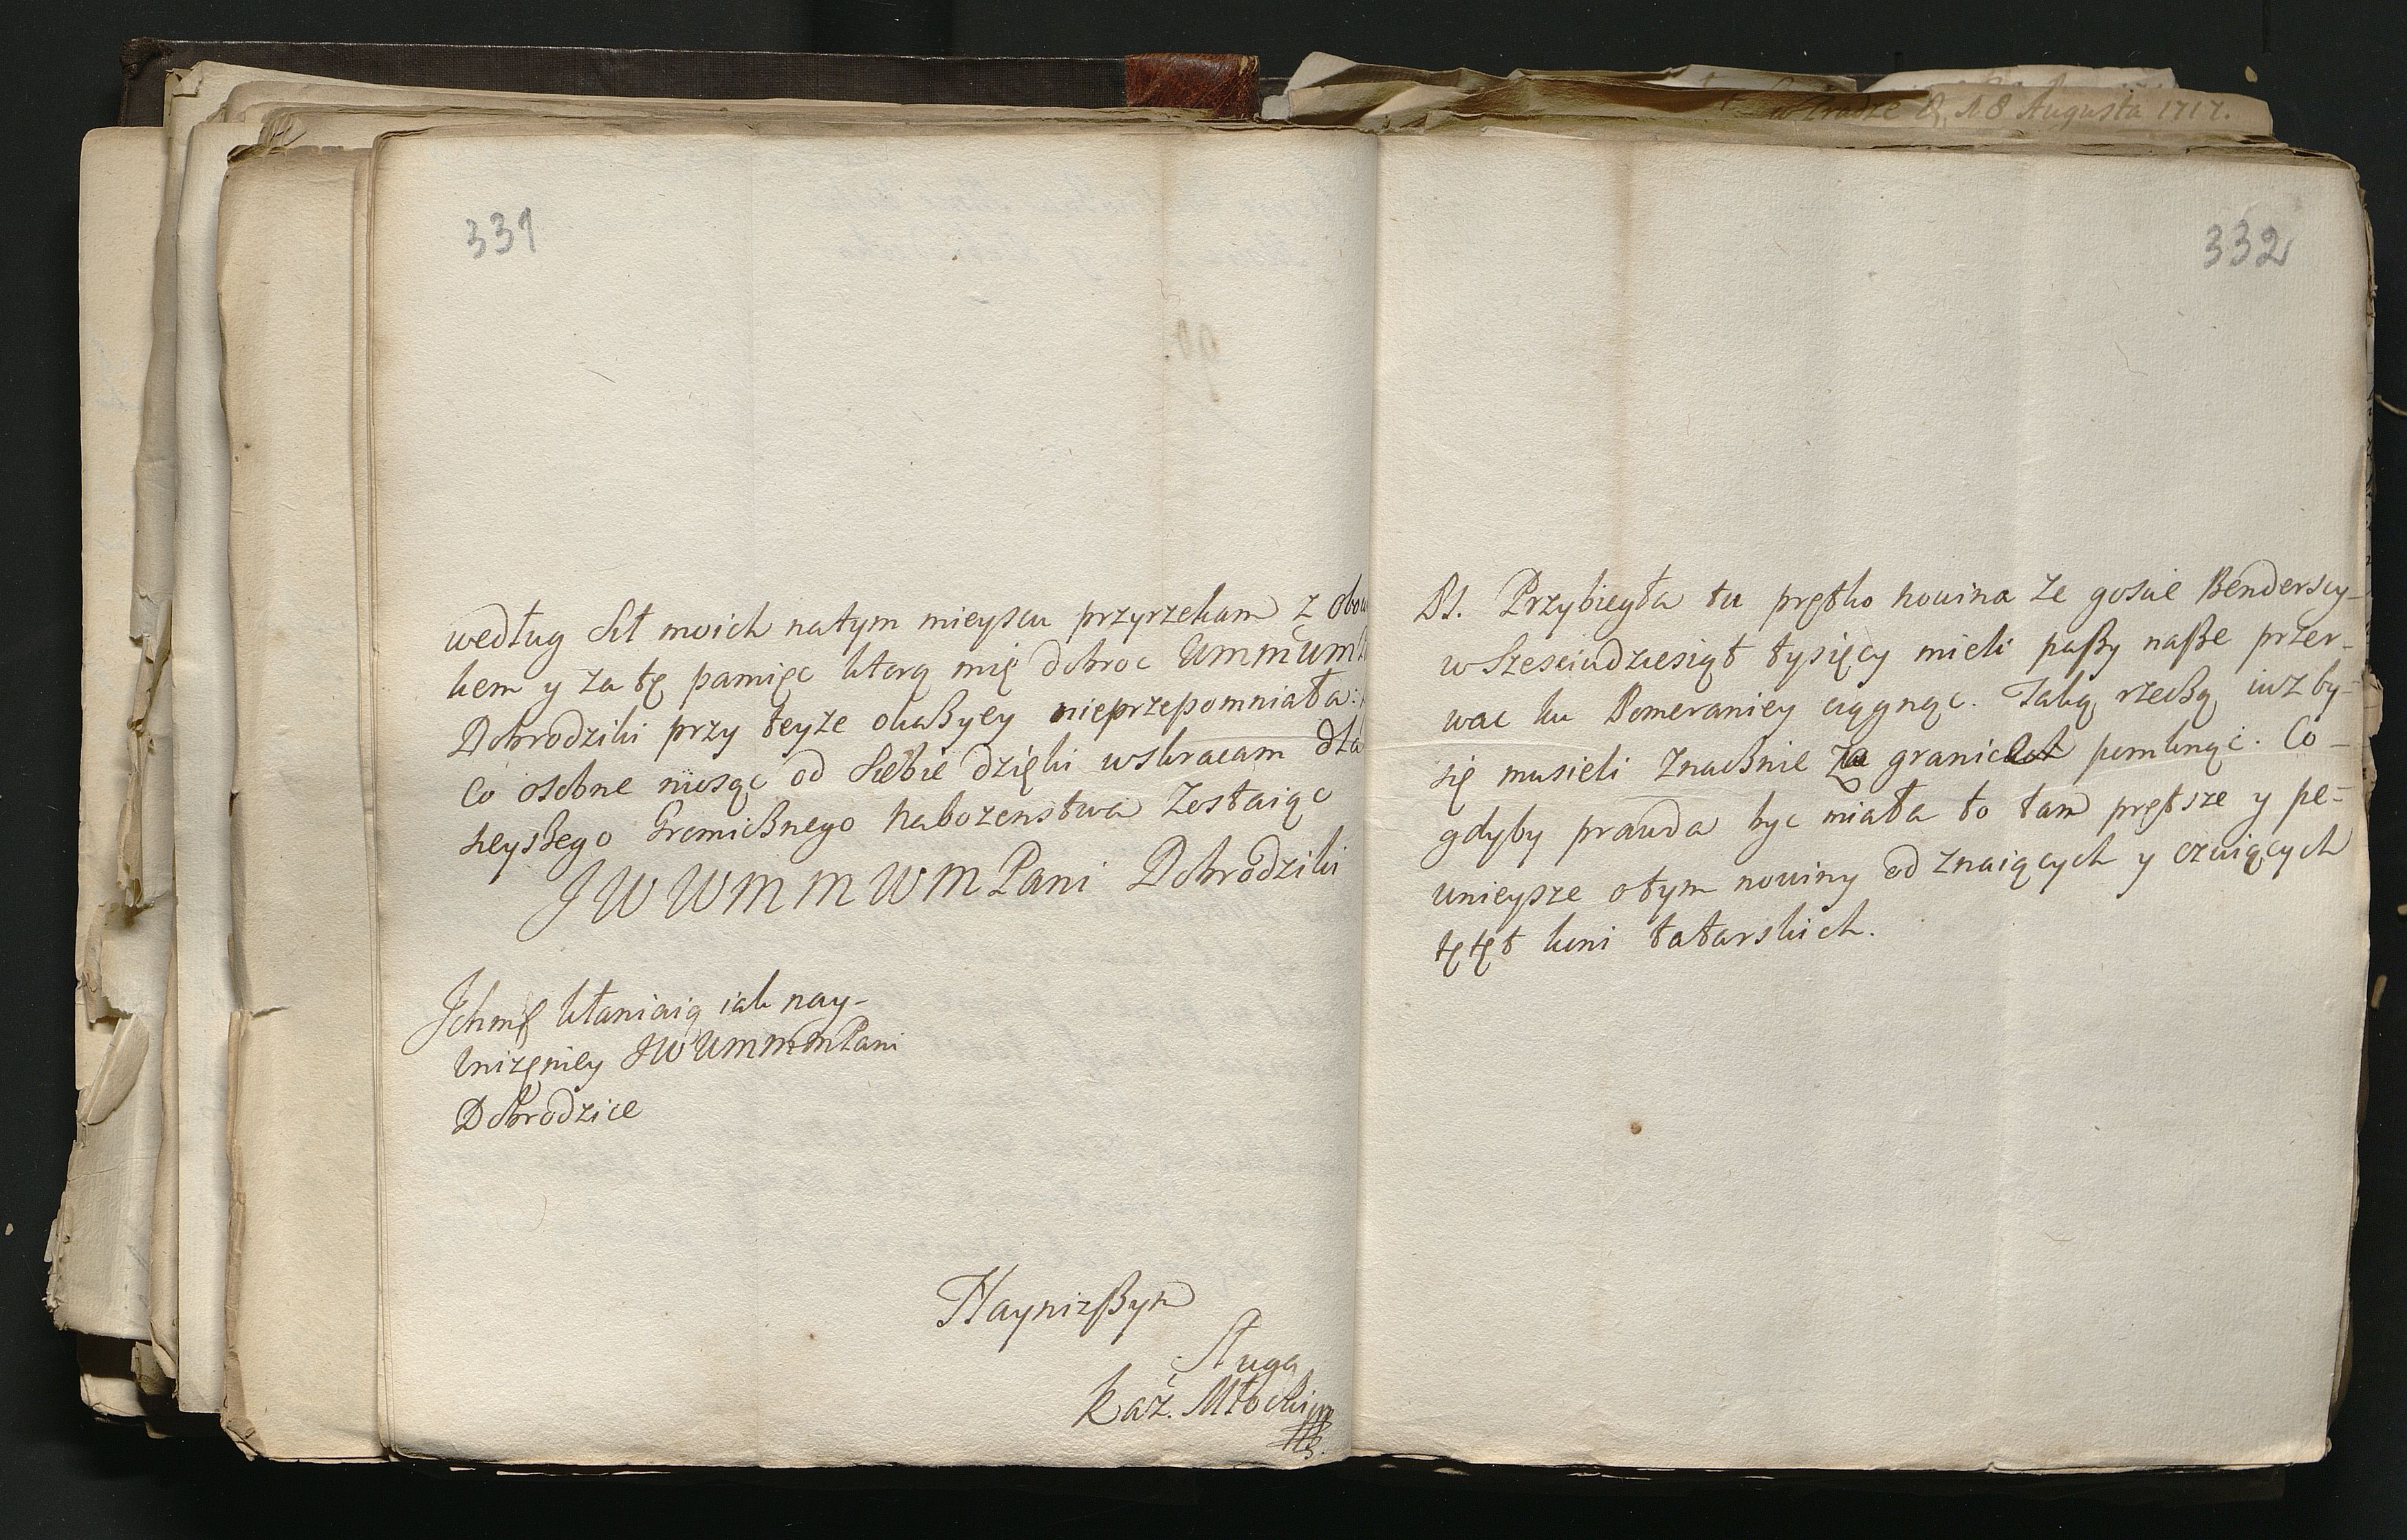 w Iradze D. 18 Augusta 1717.
331
według Sił moich natym mieyscu przyrzekam z obow
kiem y za tę pamięc ktorą mię dobroc Ummum
Dobrodziki przy teyże okaßyey nieprzepomniała:
Co osobne niosąc od Siebie dzięki wskracam dla
heyßego Gromicßnego nabozenstwa Zostaiąc
JWWMMWMPani Dobrodziki
Ichmß kłaniaią iak nay-
niżęniey JWUmmmPani
Dobrodzice
Nayniżßym
Sługa
Kaź. Młocki
332
Ps. Przybiegła tu prętko nowina że goscie Benderscy-
w Szesciudziesiąt tysięcy mieli paßy naße przer-
wac ku Pomeraniey ciągnąc. Taką rzecßą iuż by-
się musieli znacßnie za granice pomknąc. Co-
gdyby prawda byc miała to tam prętsze y pe-
wnieysze otym nowiny od znaiących y czuiących
tętęt koni tatarskich.